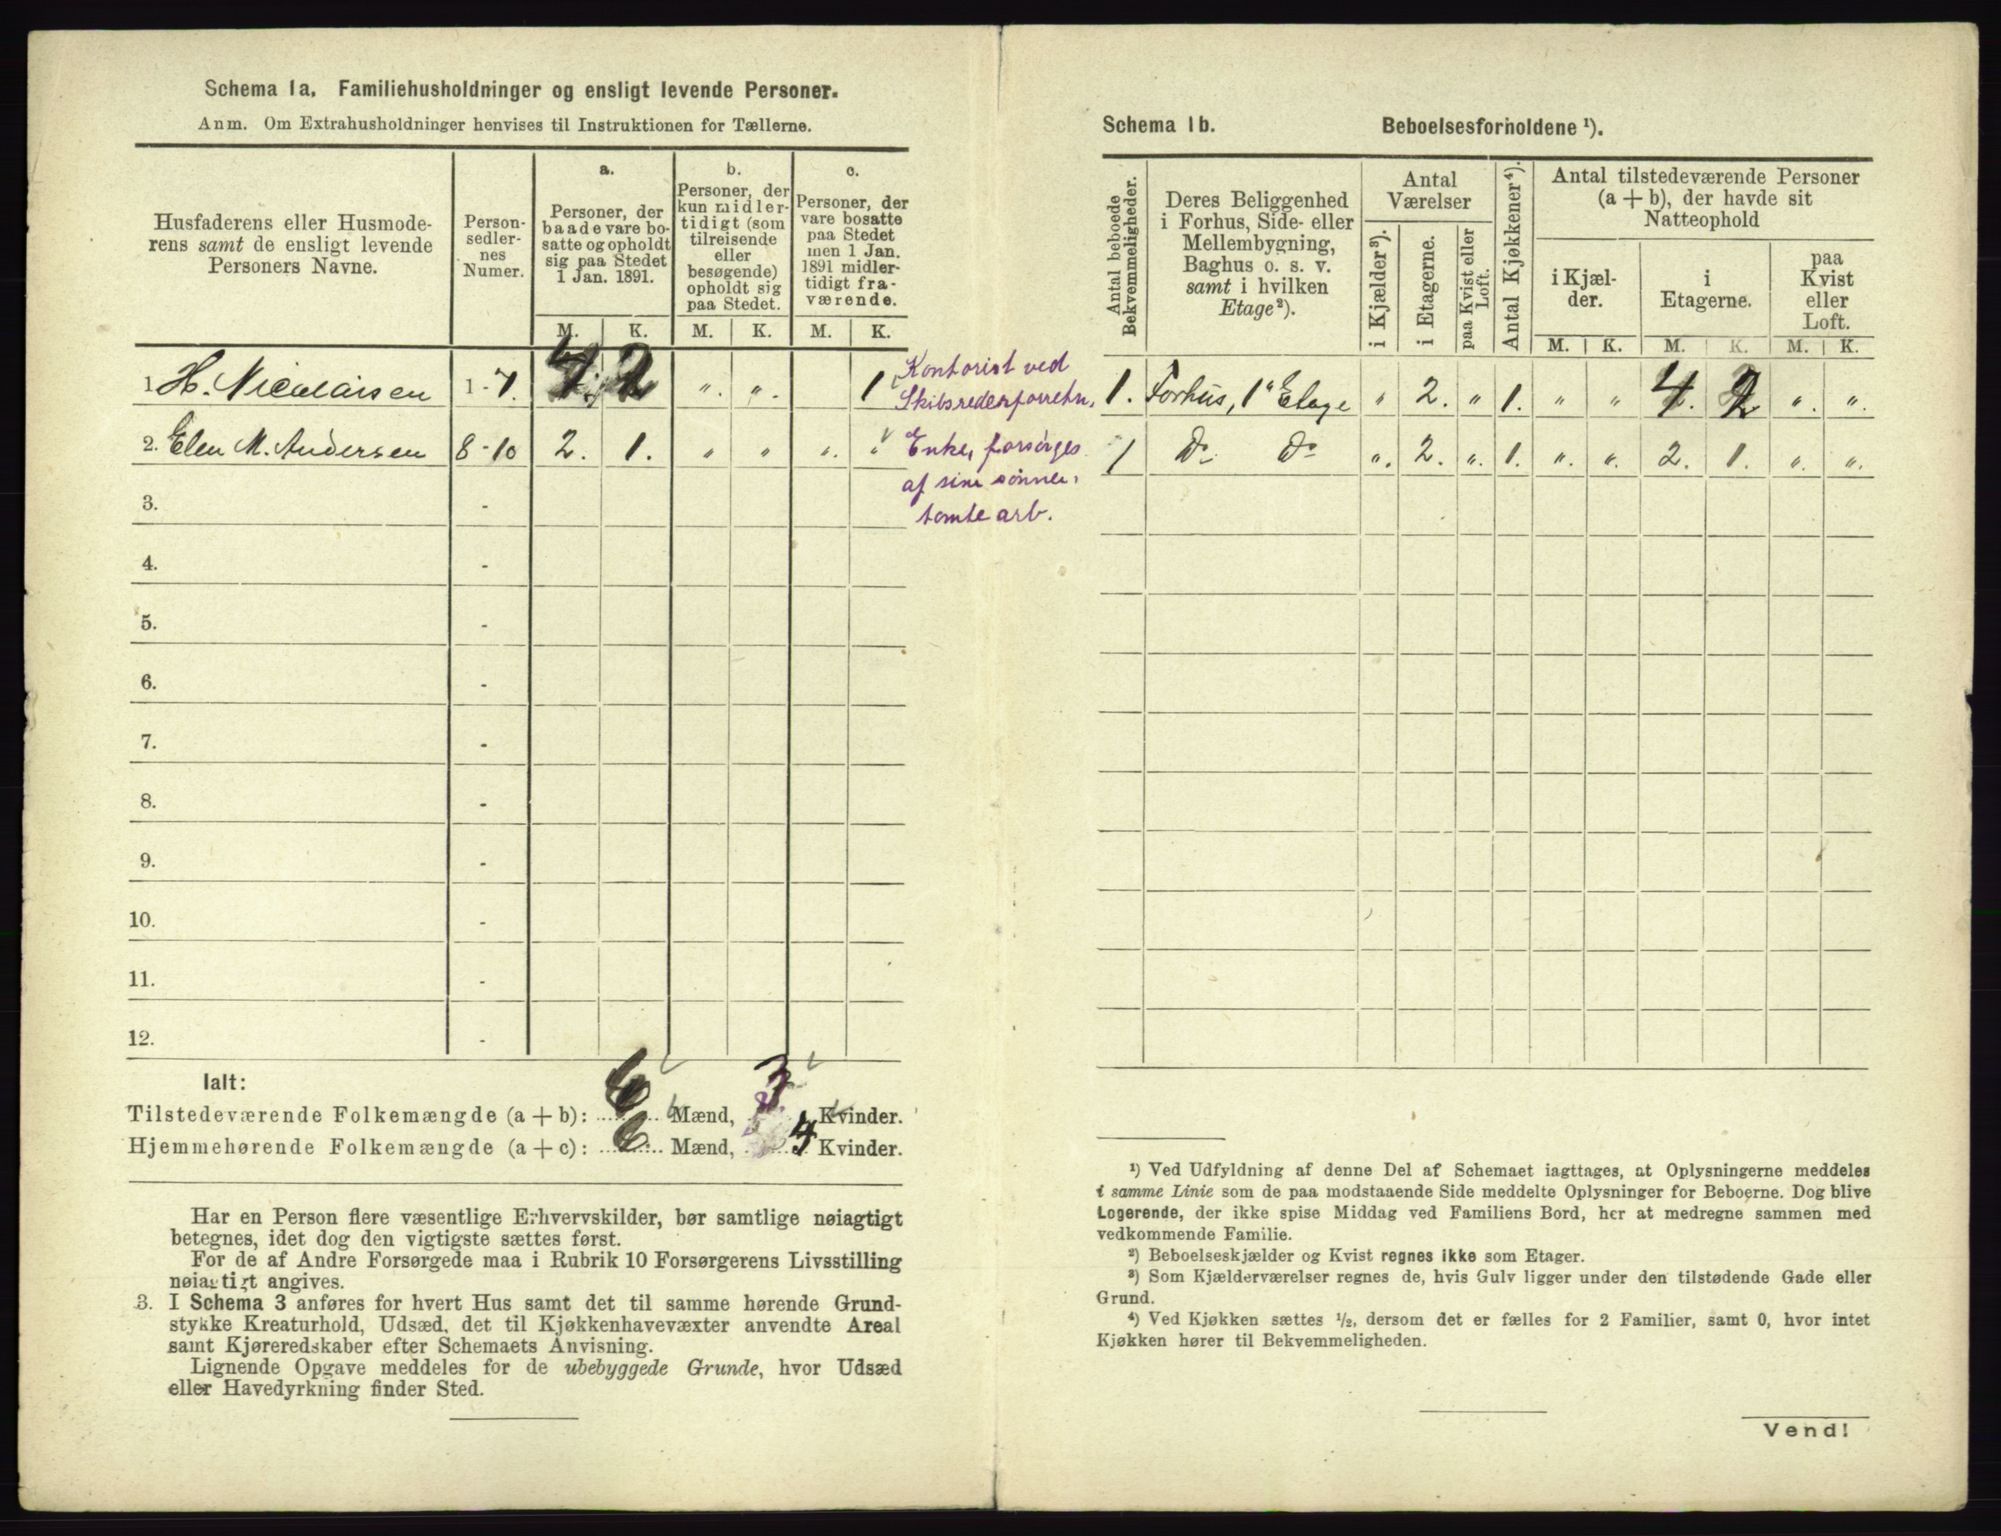 Schema 1a. Familiehusholdninger og ensligt levende Personer.
Anm. Om Extrahusholdninger henvises til Instruktionen for Tællerne.
Husfaderens eller Husmode-
rens samt de ensligt levende
Personers Navne.
Person-
sedler-
nes
Numer.
a.
Personer, der
baade vare bo-
satte og opholdt
sig paa Stedet
1 Jan. 1891.
b.
Personer, der
kun midler-
tidigt (som
tilreisende
eller
besøgende)
opholdt sig
paa Stedet.
c.
Personer, der
vare bosatte
paa Stedet
men 1 Jan.
1891 midler-
tidigt fra-
værende.
M. K. M. K. M. K.
1 H. Nicolaisen 1-7. 4 2 " " 1 Kontorist ved
Skibsrederforretn.
2. Elen M. Andersen 8-10 2. 1. " " " " Enke, forsørges
af sine sønner,
tomte arb.
3. -
4. -
5. -
6. -
7. -
8. -
9. -
10. -
11. -
12. -
Ialt:
Tilstedeværende Folkemængde (a + b): 6 Mænd, 3 Kvinder.
Hjemmehørende Folkemængde (a + c): 6. Mænd, 4 Kvinder.
Har en Person flere væsentlige Erhvervskilder, bør samtlige nøiagtigt
betegnes, idet dog den vigtigste sættes først.
For de af Andre Forsørgede maa i Rubrik 10 Forsørgerens Livsstilling
nøiagtigt angives.
3. I Schema 3 anføres for hvert Hus samt det til samme hørende Grund-
stykke Kreaturhold, Udsæd, det til Kjøkkenhavevæxter anvendte Areal
samt Kjøreredskaber efter Schemaets Anvisning.
Lignende Opgave meddeles for de ubebyggede Grunde, hvor Udsæd
eller Havedyrkning finder Sted.
Schema 1b. Beboelsesforholdene ¹).
Antal beboede
Bekvemmeligheder.
Deres Beliggenhed
i Forhus, Side- eller
Mellembygning,
Baghus o. s. v.
samt i hvilken
Etage²).
Antal
Værelser
i Kjælder³).
i Etagerne.
paa Kvist eller
Loft.
Antal Kjøkkener⁴).
Antal tilstedeværende Personer
(a + b), der havde sit
Natteophold
i Kjæl-
der.
i
Etagerne.
paa
Kvist
eller
Loft.
M. K. M. K. M. K.
1. Forhus, 1ᵉ Etage " 2. " 1. " " 4. 2 " "
1 Do Do " 2. " 1. " " 2. 1. " "
¹) Ved Udfyldning af denne Del af Schemaet iagttages, at Oplysningerne meddeles
i samme Linie som de paa modstaaende Side meddelte Oplysninger for Beboerne. Dog blive
Logerende, der ikke spise Middag ved Familiens Bord, her at medregne sammen med
vedkommende Familie.
²) Beboelseskjælder og Kvist regnes ikke som Etager.
³) Som Kjælderværelser regnes de, hvis Gulv ligger under den tilstødende Gade eller
Grund.
⁴) Ved Kjøkken sættes ½, dersom det er fælles for 2 Familier, samt 0, hvor intet
Kjøkken hører til Bekvemmeligheden.
Vend!